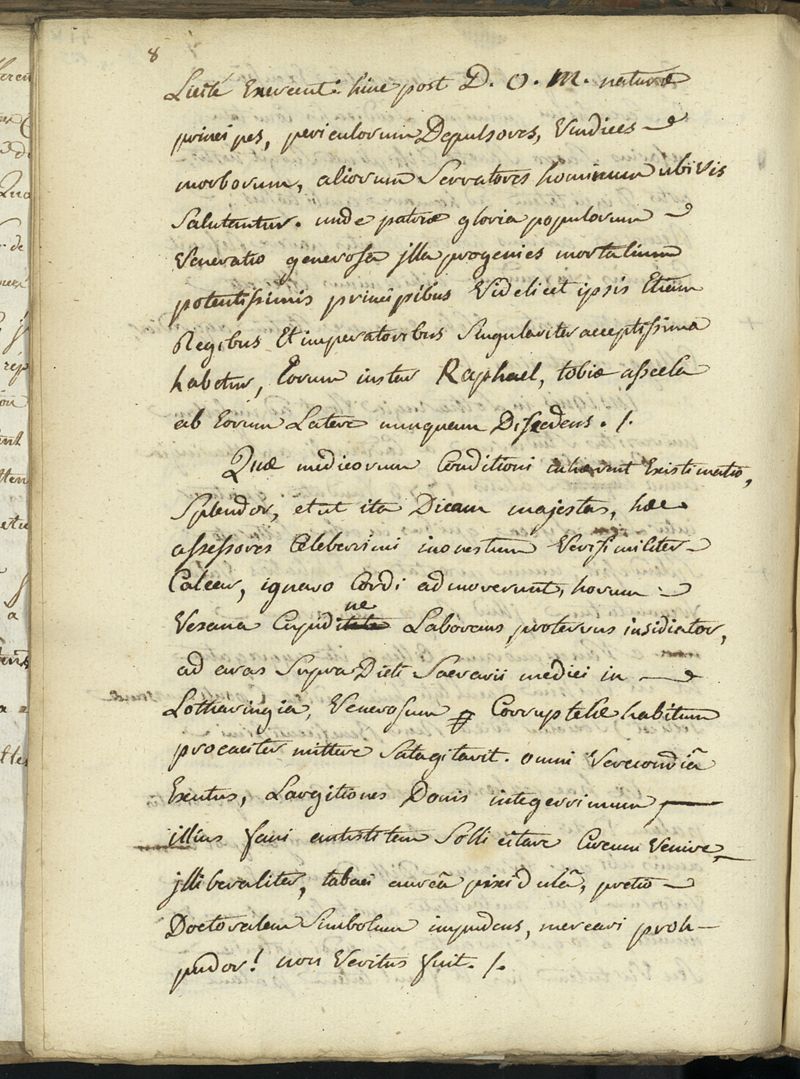 8
Luité Exercent: hinc post D. O. M. naturæ
principes, periculorum Depulsores, Vindices
morborum, aliorum Servatores hominum ubivis
Salutantur. unde patriæ gloria populorum
Veneratio generosa jlla progenies mortalium
potentissimis principibus Videlicet ipsis Etiam
Regibus Et imperatoribus Singulariter acceptissima
habetur, Eorum instar Raphael, tobiæ assecla
ab Eorum Latere nunquam Discedens. /.
Quæ medicorum Conditioni inhærent Existimatio,
Splendor, et ut ita Dicam majestas, hæc
assessores Celeberrimi inonestum Verisimiliter
Calcar, ignavo Cordi admoverunt, horum
Vesana Cupidine Laborans, protervus insidiator,
ad aras Supra Dicti Sacrarii medici in
Lotharingia, Venerosum Corruptelæ habitum
procaciter mittere Satagitavit. omni Verecondiâ
Exutus, Largitiones Donis integerrimum
illius fani antistitem Sollicitare Circum Venire,
jlliberaliter, tabaci aureâ pixidulâ, pretio
Doctoralem Simbolum impudens, mercari proh
pudor! non Veritus fuit. /.